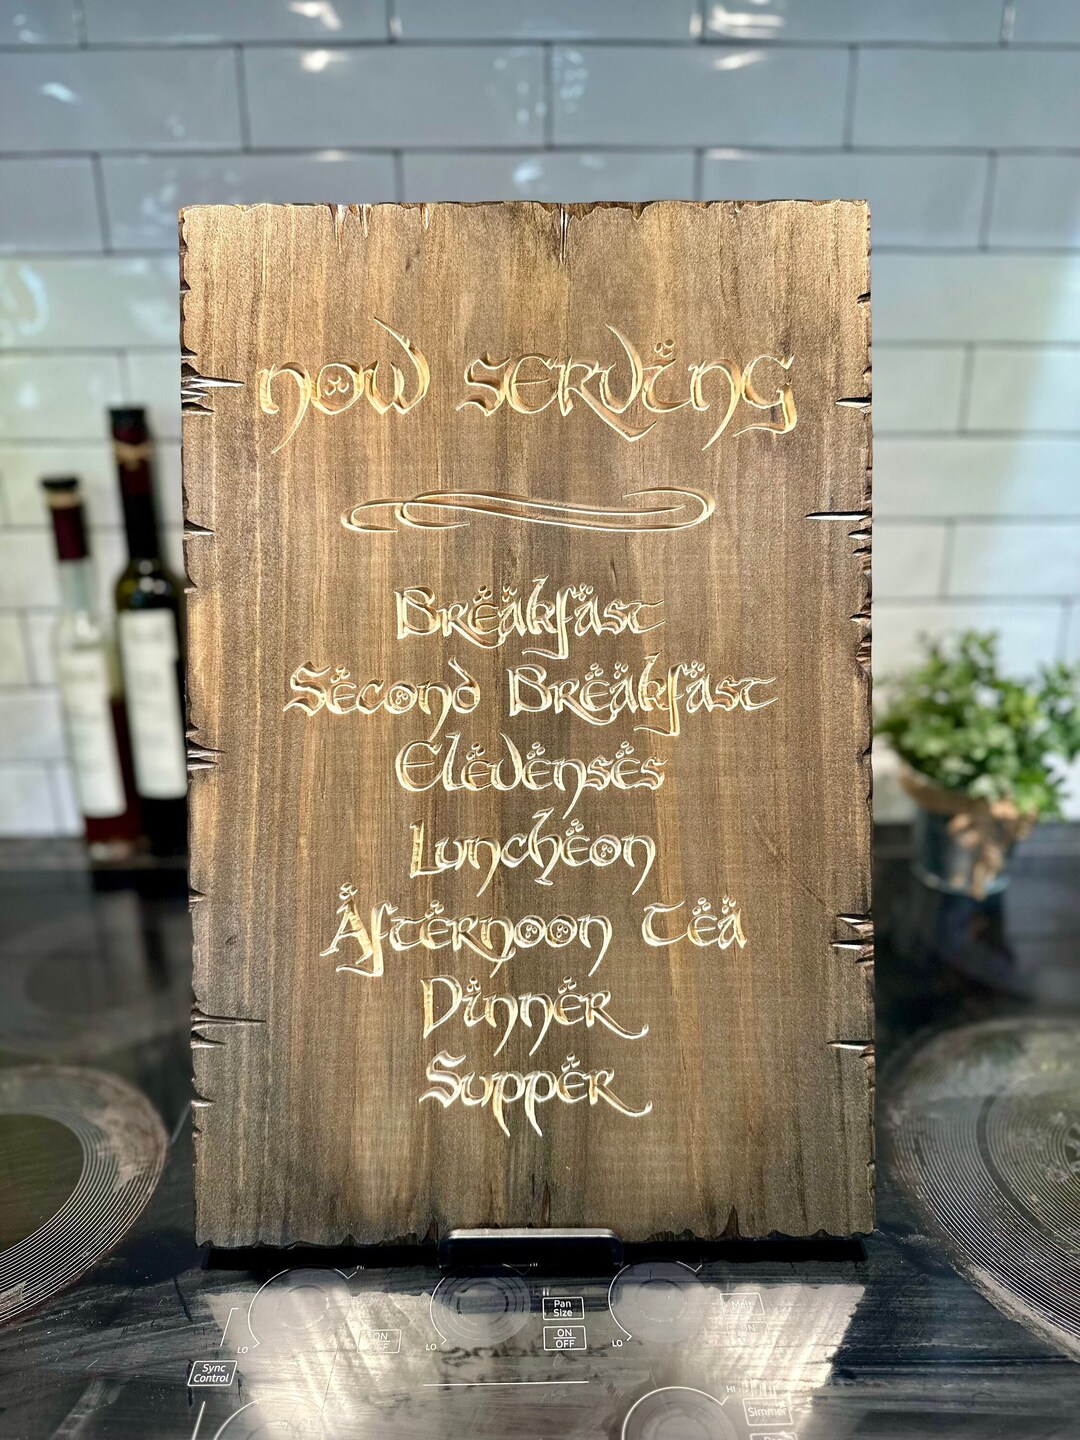 now serving
Breakfast
Second Breakfast
Elevenses
Luncheon
Afternoon Tea
Dinner
Supper
HI
HI
Pan Size
Melt
ON OFF
ON OFF
ON
LO
LO
LO
Sync Control
HI
Simmer